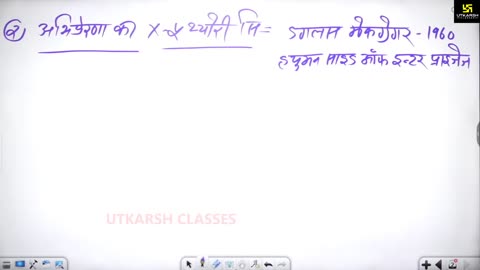 UTKARSH CLASSES
② अभिप्रेरणा की X-Y थ्योरी सि= डगलास मेकग्रेगर - 1960
ह्युमन साइड ऑफ इन्टर प्राइजेज
UTKARSH CLASSES